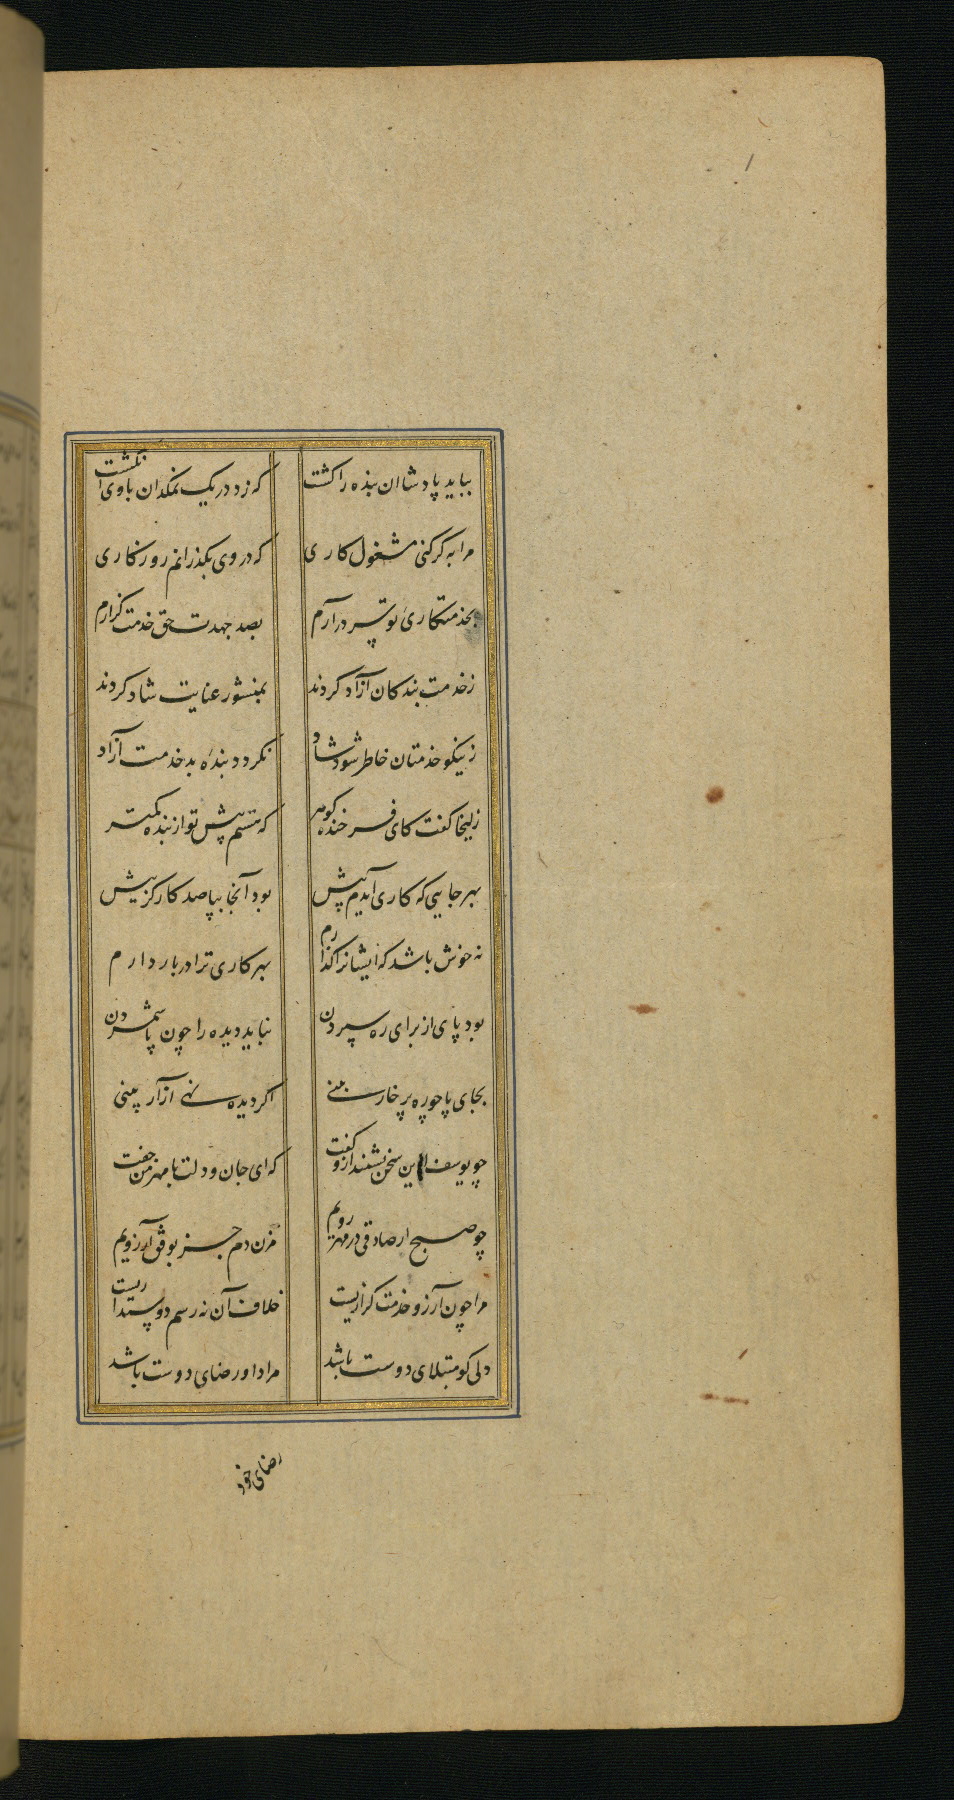 بباید پادشاان بنده را کشت
که زد در یک نمکدان با وی انگشت
مرا به گر کنی مشغول کاری
که در وی بگذرانم روزگاری
بخدمتکاری تو سر در آرم
بصد جهدت حق خدمت گزارم
ز خدمت بندکان آزاد کردند
بمنشور عنایت شاد کردند
ز نیکو خدمتان خاطر شود شاد
نکردد بنده بد خدمت آزاد
زلیخا کفت کای فرخنده کوهر
که هستم پیش تو از بنده کمتر
بهر جایی که کاری آیدم پیش
بود آنجا بپا صد کارکر بیش
نه خوش باشد که ایشانرا کذارم
بهر کاری ترا در بار دارم
بود پای از برای ره سپردن
نباید دیده را چون پا شمردن
بجای پا چو ره پر خار بینی
اکر دیده نهی آزار بینی
چو یوسف این سخن بشنید ازو کفت
که ای جان و دلت با مهر من جفت
چو صبح ار صادقی در مهر رویم
مزن دم جز بوفق آرزویم
مرا چون آرزو خدمت کزاریست
خلاف آن نه رسم دوستداریست
دلی کو مبتلای دوست باشد
مراد او رضای دوست باشد
رضای خود